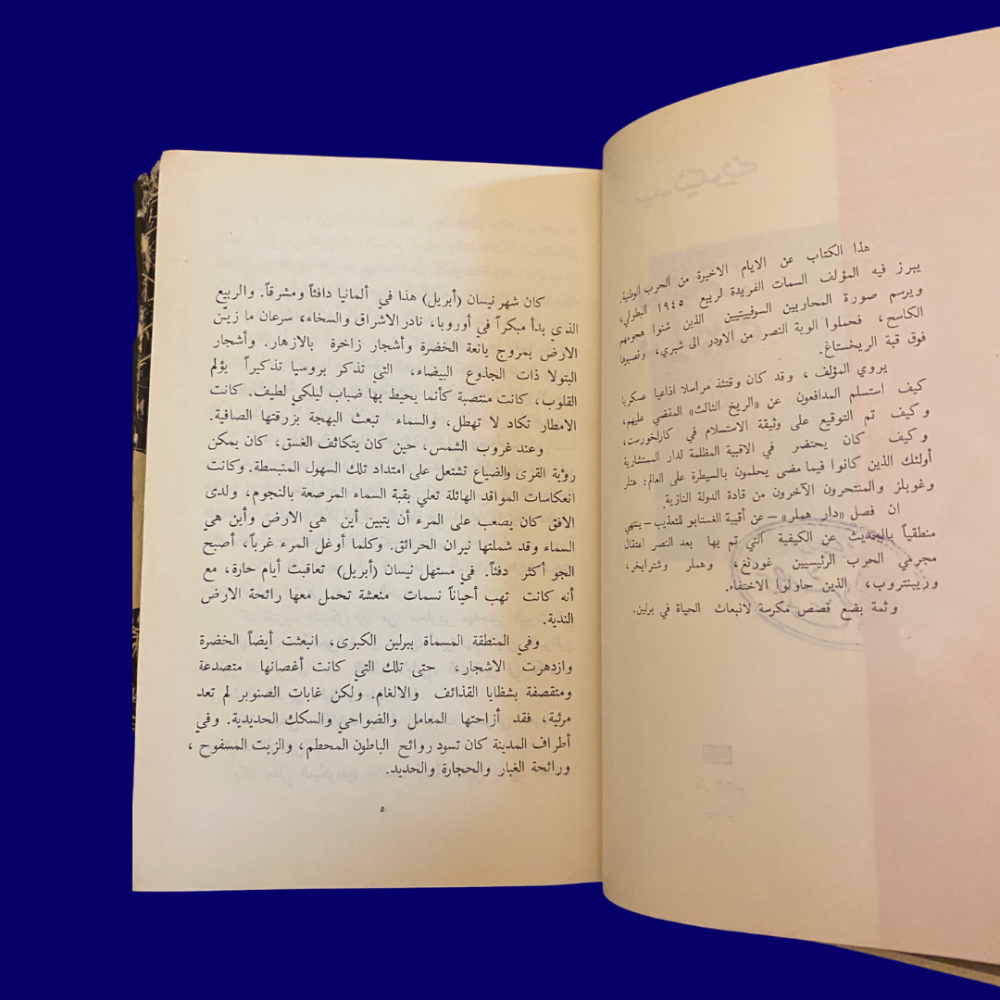 هذا الكتاب عن الايام الاخيرة من الحرب الوطنية.
يبرز فيه المؤلف السمات الفريدة لربيع ١٩٤٥ البطولي،
ويرسم صورة المحاربين السوفييتيين الذين شنوا هجومهم
الكاسح، فحملوا الوية النصر من الاودر الى شبري، ونصبوها
فوق قبة الريخستاغ.
يروي المؤلف، وقد كان وقتئذ مراسلا اذاعيا عسكريا
كيف استسلم المدافعون عن «الريخ الثالث» المقضي عليهم،
وكيف تم التوقيع على وثيقة الاستسلام في كارلخورست،
وكيف كان يحتضر في الاقبية المظلمة لدار المستشارية
أولئك الذين كانوا فيما مضى يحلمون بالسيطرة على العالم: هتلر
وغوبلز والمنتحرون الآخرون من قادة الدولة النازية.
ان فصل «دار هملر» – عن أقبية الغستابو للتعذيب – ينتهي
منطقياً بالحديث عن الكيفية التي تم بها بعد النصر اعتقال
مجرمي الحرب الرئيسيين غورنغ، وهملر وشترايخر،
وريبنتروب، الذين حاولوا الاختفاء.
وثمة بضع قصص مكرسة لانبعاث الحياة في برلين.
كان شهر نيسان (أبريل) هذا في ألمانيا دافئاً ومشرقاً. والربيع
الذي بدأ مبكراً في أوروبا، نادر الاشراق والسخاء، سرعان ما زيّن
الارض بمروج يانعة الخضرة وأشجار زاخرة بالازهار. وأشجار
البتولا ذات الجذوع البيضاء، التي تذكر بروسيا تذكيراً يؤلم
القلوب، كانت منتصبة كأنما يحيط بها ضباب ليلكي لطيف. كانت
الامطار تكاد لا تهطل، والسماء تبعث البهجة بزرقتها الصافية.
وعند غروب الشمس، حين كان يتكاثف الغسق، كان يمكن
رؤية القرى والضياع تشتعل على امتداد تلك السهول المنبسطة. وكانت
انعكاسات المواقد الهائلة تعلي بقبة السماء المرصعة بالنجوم، ولدى
الافق كان يصعب على المرء أن يتبين أين هي الارض وأين هي
السماء وقد شملتها نيران الحرائق. وكلما أوغل المرء غرباً، أصبح
الجو أكثر دفئاً. في مستهل نيسان (أبريل) تعاقبت أيام حارة، مع
أنه كانت تهب أحياناً نسمات منعشة تحمل معها رائحة الارض
الندية.
وفي المنطقة المسماة ببرلين الكبرى، انبعثت أيضاً الخضرة
وازدهرت الاشجار، حتى تلك التي كانت أغصانها متصدعة
ومتقصفة بشظايا القذائف والالغام. ولكن غابات الصنوبر لم تعد
مرئية، فقد أزاحتها المعامل والضواحي والسكك الحديدية. وفي
أطراف المدينة كان تسود روائح الباطون المحطم، والزيت المسفوح،
ورائحة الغبار والحجارة والحديد.
٥